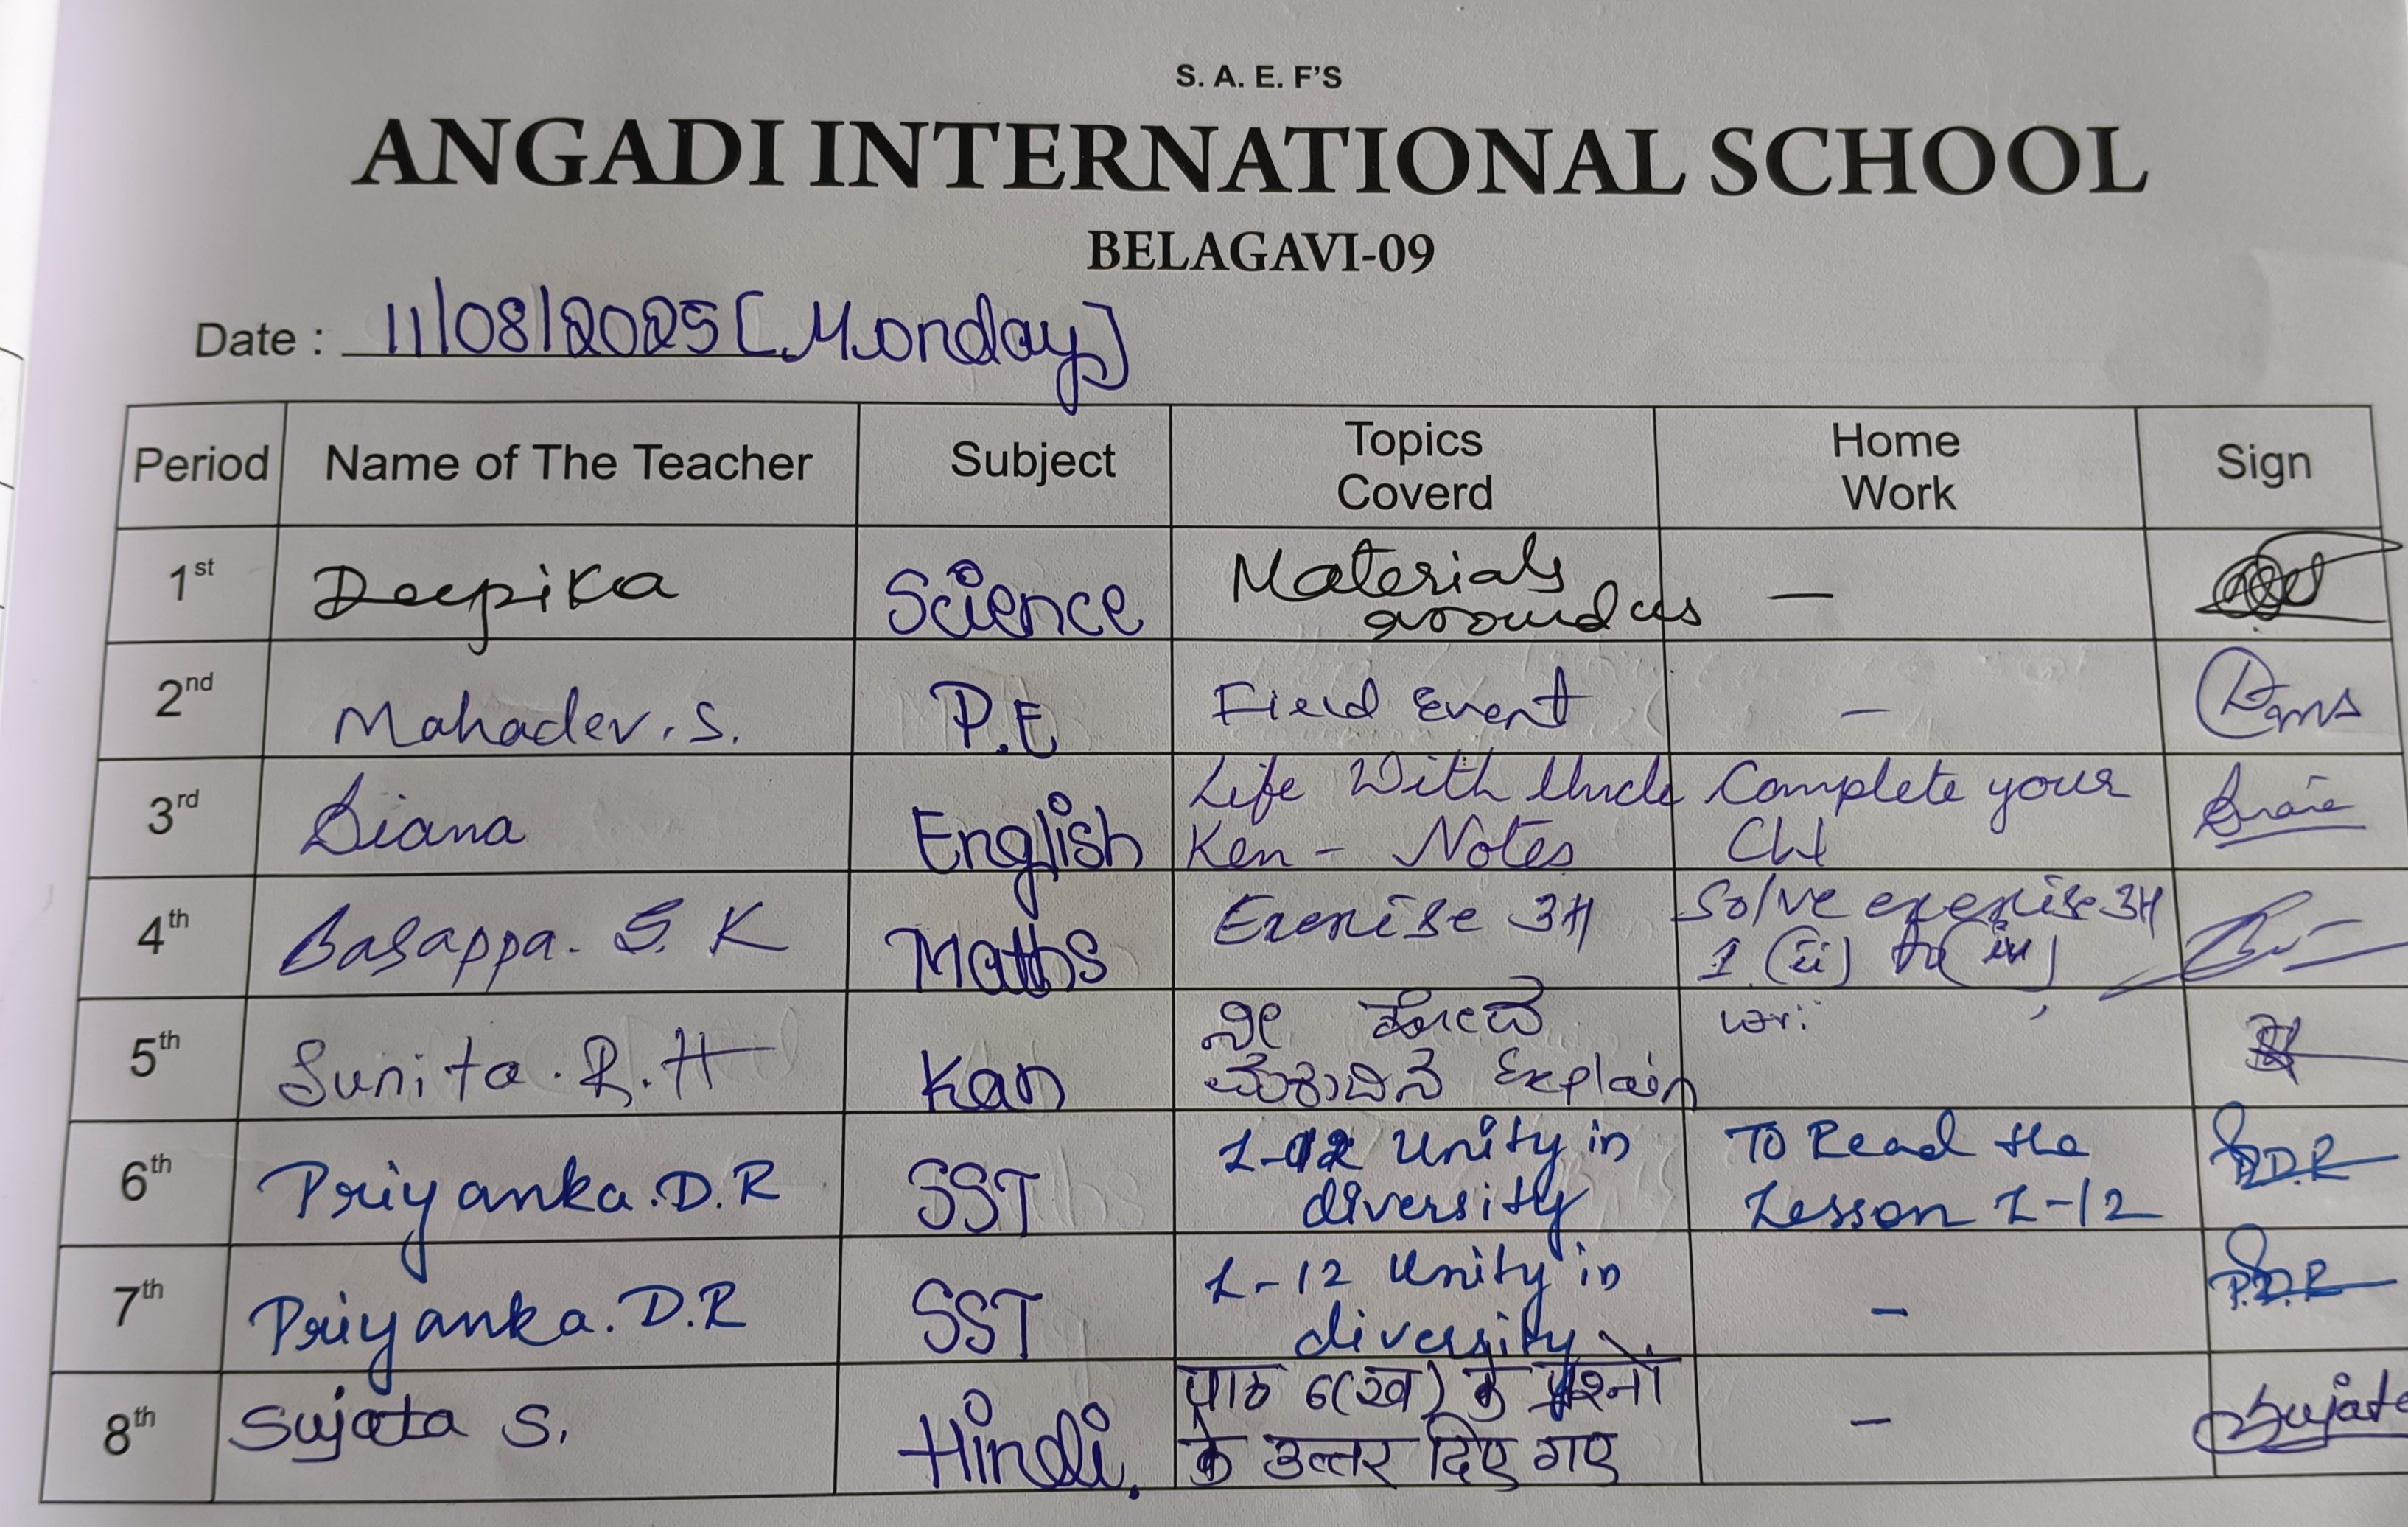 S. A. E. F'S
ANGADI INTERNATIONAL SCHOOL
BELAGAVI-09
Date : 11/08/2025 [Monday]
Period Name of The Teacher Subject Topics Coverd Home Work Sign
1st Deepika Science Materials around us —
2nd Mahadev. S. P.E Field Event —
3rd Diana English Life With Uncle Ken - Notes Complete your CW
4th Basappa. S. K Maths Exercise 3H Solve exercise 3H 1 (ii) to (iv)
5th Sunita. R. H Kan ನೀ ಹೋದ Explain
6th Priyanka. D.R SST L-12 Unity in diversity To Read the Lesson L-12 P.D.R
7th Priyanka. D.R SST L-12 Unity in diversity — P.D.R
8th Sujata S. Hindi. पाठ 6(ख) के प्रश्नों के उत्तर दिए गए — Sujata